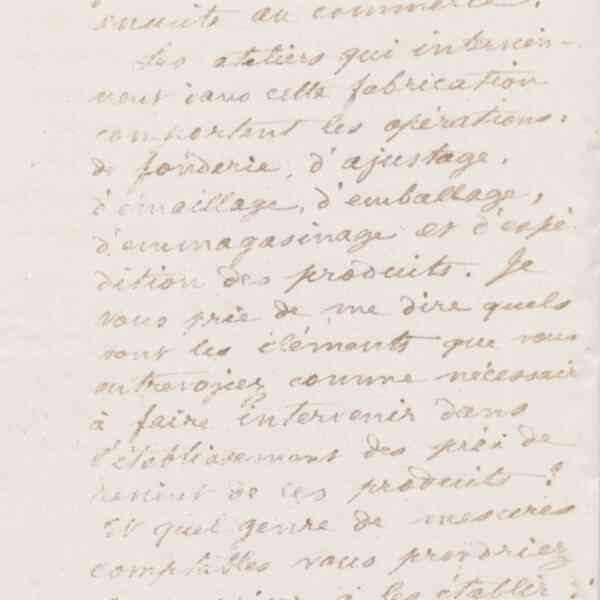 ensuite au commerce.
Les ateliers qui intervien-
nent dans cette fabrication
comportent les opérations:
de fonderie, d'ajustage,
d'émaillage, d'emballage,
d'emmagasinage et d'expé
dition des produits. Je
vous prie de me dire quels
sont les éléments que vous
entrevoyez comme nécessair
à faire intervenir dans
l'établissement des prix de
revient de ces produits?
Et quel genre de mesures
comptables vous prendriez
à les établir?